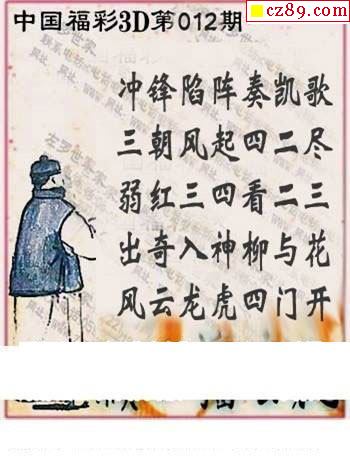 cz89.com
中国福彩3D第012期
冲锋陷阵奏凯歌
三朝风起四二尽
弱红三四看二三
出奇入神柳与花
风云龙虎四门开